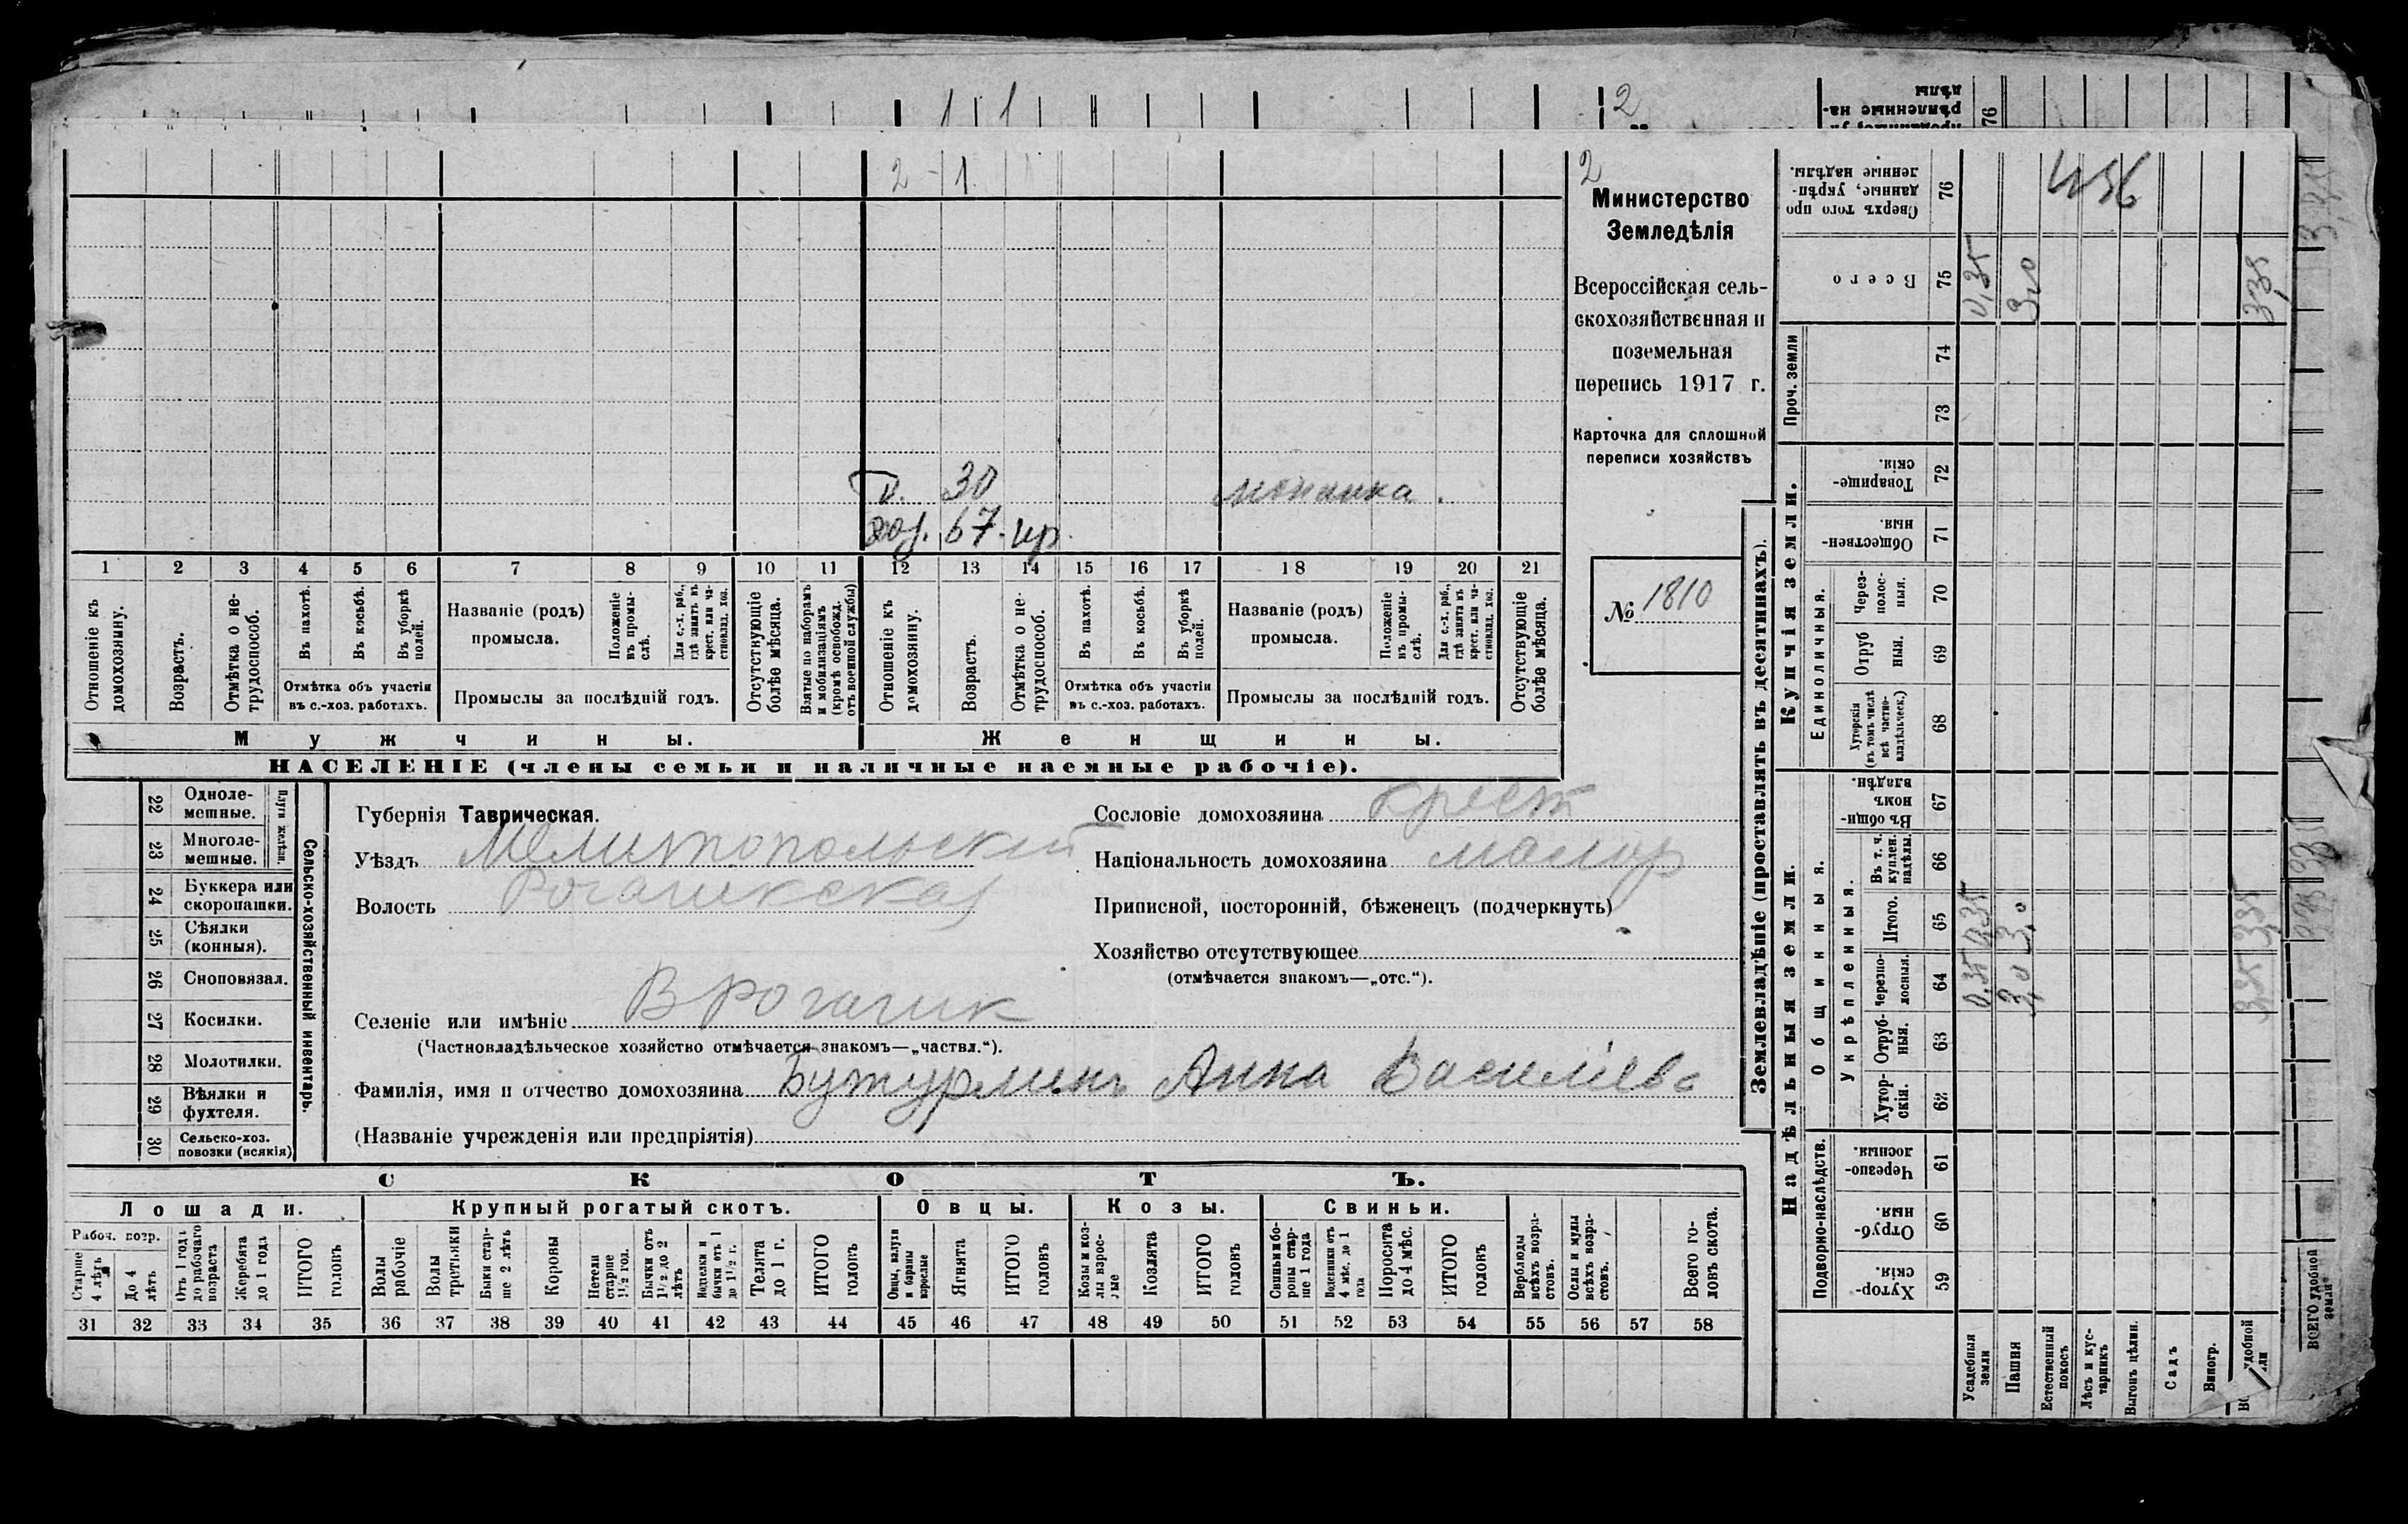 1 1 2
2 - 1
2
Министерство
Земледѣлія
Всероссійская сель-
скохозяйственная и
поземельная
перепись 1917 г.
Карточка для сплошной
переписи хозяйствъ
№ 1810
30
67. нр.
1 2 3 4 5 6 7 8 9 10 11 12 13 14 15 16 17 18 19 20 21
Отношеніе къ домохозяину.
Возрастъ.
Отмѣтка о не-трудоспособ.
Въ пахотѣ.
Въ косьбѣ.
Въ уборкѣ полей.
Отмѣтка объ участіи
въ с.-хоз. работахъ.
Названіе (родъ)
промысла.
Положеніе въ промы-слѣ.
Для с.-х. раб., гдѣ занятъ въ крест. или ча-стновлад. хоз.
Промыслы за послѣдній годъ.
Отсутствующіе болѣе мѣсяца.
Взятые по наборамъ и мобилизаціямъ (кромѣ освобожд. отъ военной службы)
Отношеніе къ домохозяину.
Возрастъ.
Отмѣтка о не-трудоспособ.
Въ пахотѣ.
Въ косьбѣ.
Въ уборкѣ полей.
Отмѣтка объ участіи
въ с.-хоз. работахъ.
Названіе (родъ)
промысла.
Положеніе въ промы-слѣ.
Для с.-х. раб., гдѣ занята въ крест. или ча-стновлад. хоз.
Промыслы за послѣдній годъ.
Отсутствующіе болѣе мѣсяца.
Мужчины.
Женщины.
НАСЕЛЕНІЕ (члены семьи и наличные наемные рабочіе).
22 Одноле-мешные.
23 Многоле-мешные.
Плуги желѣзн.
24 Буккера или скоропашки.
25 Сѣялки (конныя).
26 Сноповязал.
27 Косилки.
28 Молотилки.
29 Вѣялки и фухтеля.
30 Сельско-хоз. повозки (всякія)
Сельско-хозяйственный инвентарь.
Губернія Таврическая.
Уѣздъ Мелитопольский
Волость Рогачикская
Сословіе домохозяина крест
Національность домохозяина малор
Приписной, посторонній, бѣженецъ (подчеркнуть)
Хозяйство отсутствующее
(отмѣчается знакомъ—„отс.“).
Селеніе или имѣніе В Рогачик
(Частновладѣльческое хозяйство отмѣчается знакомъ—„частвл.“).
Фамилія, имя и отчество домохозяина Бутурлинъ Анна Василіева
(Названіе учрежденія или предпріятія)
СКОТЪ.
Лошади.
Крупный рогатый скотъ.
Овцы.
Козы.
Свиньи.
Рабоч. возр.
Старше 4 лѣтъ
До 4 лѣтъ
Отъ 1 года до рабочаго возраста
Жеребята до 1 года
ИТОГО головъ
Волы рабочіе
Волы третьяки
Быки стар-ше 2 лѣтъ
Коровы
Нетели старше 1½ год.
Бычки отъ 1½ до 2 лѣтъ
Подтелки и бычки отъ 1 до 1½ г.
Телята до 1 г.
ИТОГО головъ
Овцы, валухи и бараны взрослые
Ягнята
ИТОГО головъ
Козы и коз-лы взрос-лые
Козлята
ИТОГО головъ
Свиньи и бо-ровы стар-ше 1 года
Подсвинки отъ 4 мѣс. до 1 года
Поросята до 4 мѣс.
ИТОГО головъ
Верблюды всѣхъ возра-стовъ.
Ослы и мулы всѣхъ возра-стовъ.
Всего го-ловъ скота.
31 32 33 34 35 36 37 38 39 40 41 42 43 44 45 46 47 48 49 50 51 52 53 54 55 56 57 58
Землевладѣніе (проставлять въ десятинахъ).
Надѣльныя земли.
Купчія земли.
Проч. земли
Подворно-наслѣдств.
Общинныя.
Укрѣпленныя.
Единоличныя.
Хутор-скія 59
Отруб-ныя. 60
Черезпо-лосныя. 61
Хутор-скія. 62
Отруб-ныя. 63
Черезпо-лосныя. 64
Итого. 65
Въ т. ч. куплен. надѣлы. 66
Въ общи-номъ владѣн. 67
Хуторскія (въ томъ числѣ всѣ частно-владѣльческ.) 68
Отруб ныя. 69
Через-полос-ныя. 70
Обществен-ныя. 71
Товарище-скія. 72
73
74
Всего 75
Сверхъ того про данные, укрѣп-ленные надѣлы. 76
Усадебныя земли 0,35 0,35 0,35
Пашня 3,0 3,0 3,0
Естественный покосъ
Лѣсъ и кус-тарникъ
Выгонъ цѣлин.
Садъ
Виногр.
3,35 3,35 3,35
436
ВСЕГО удобной земли
76